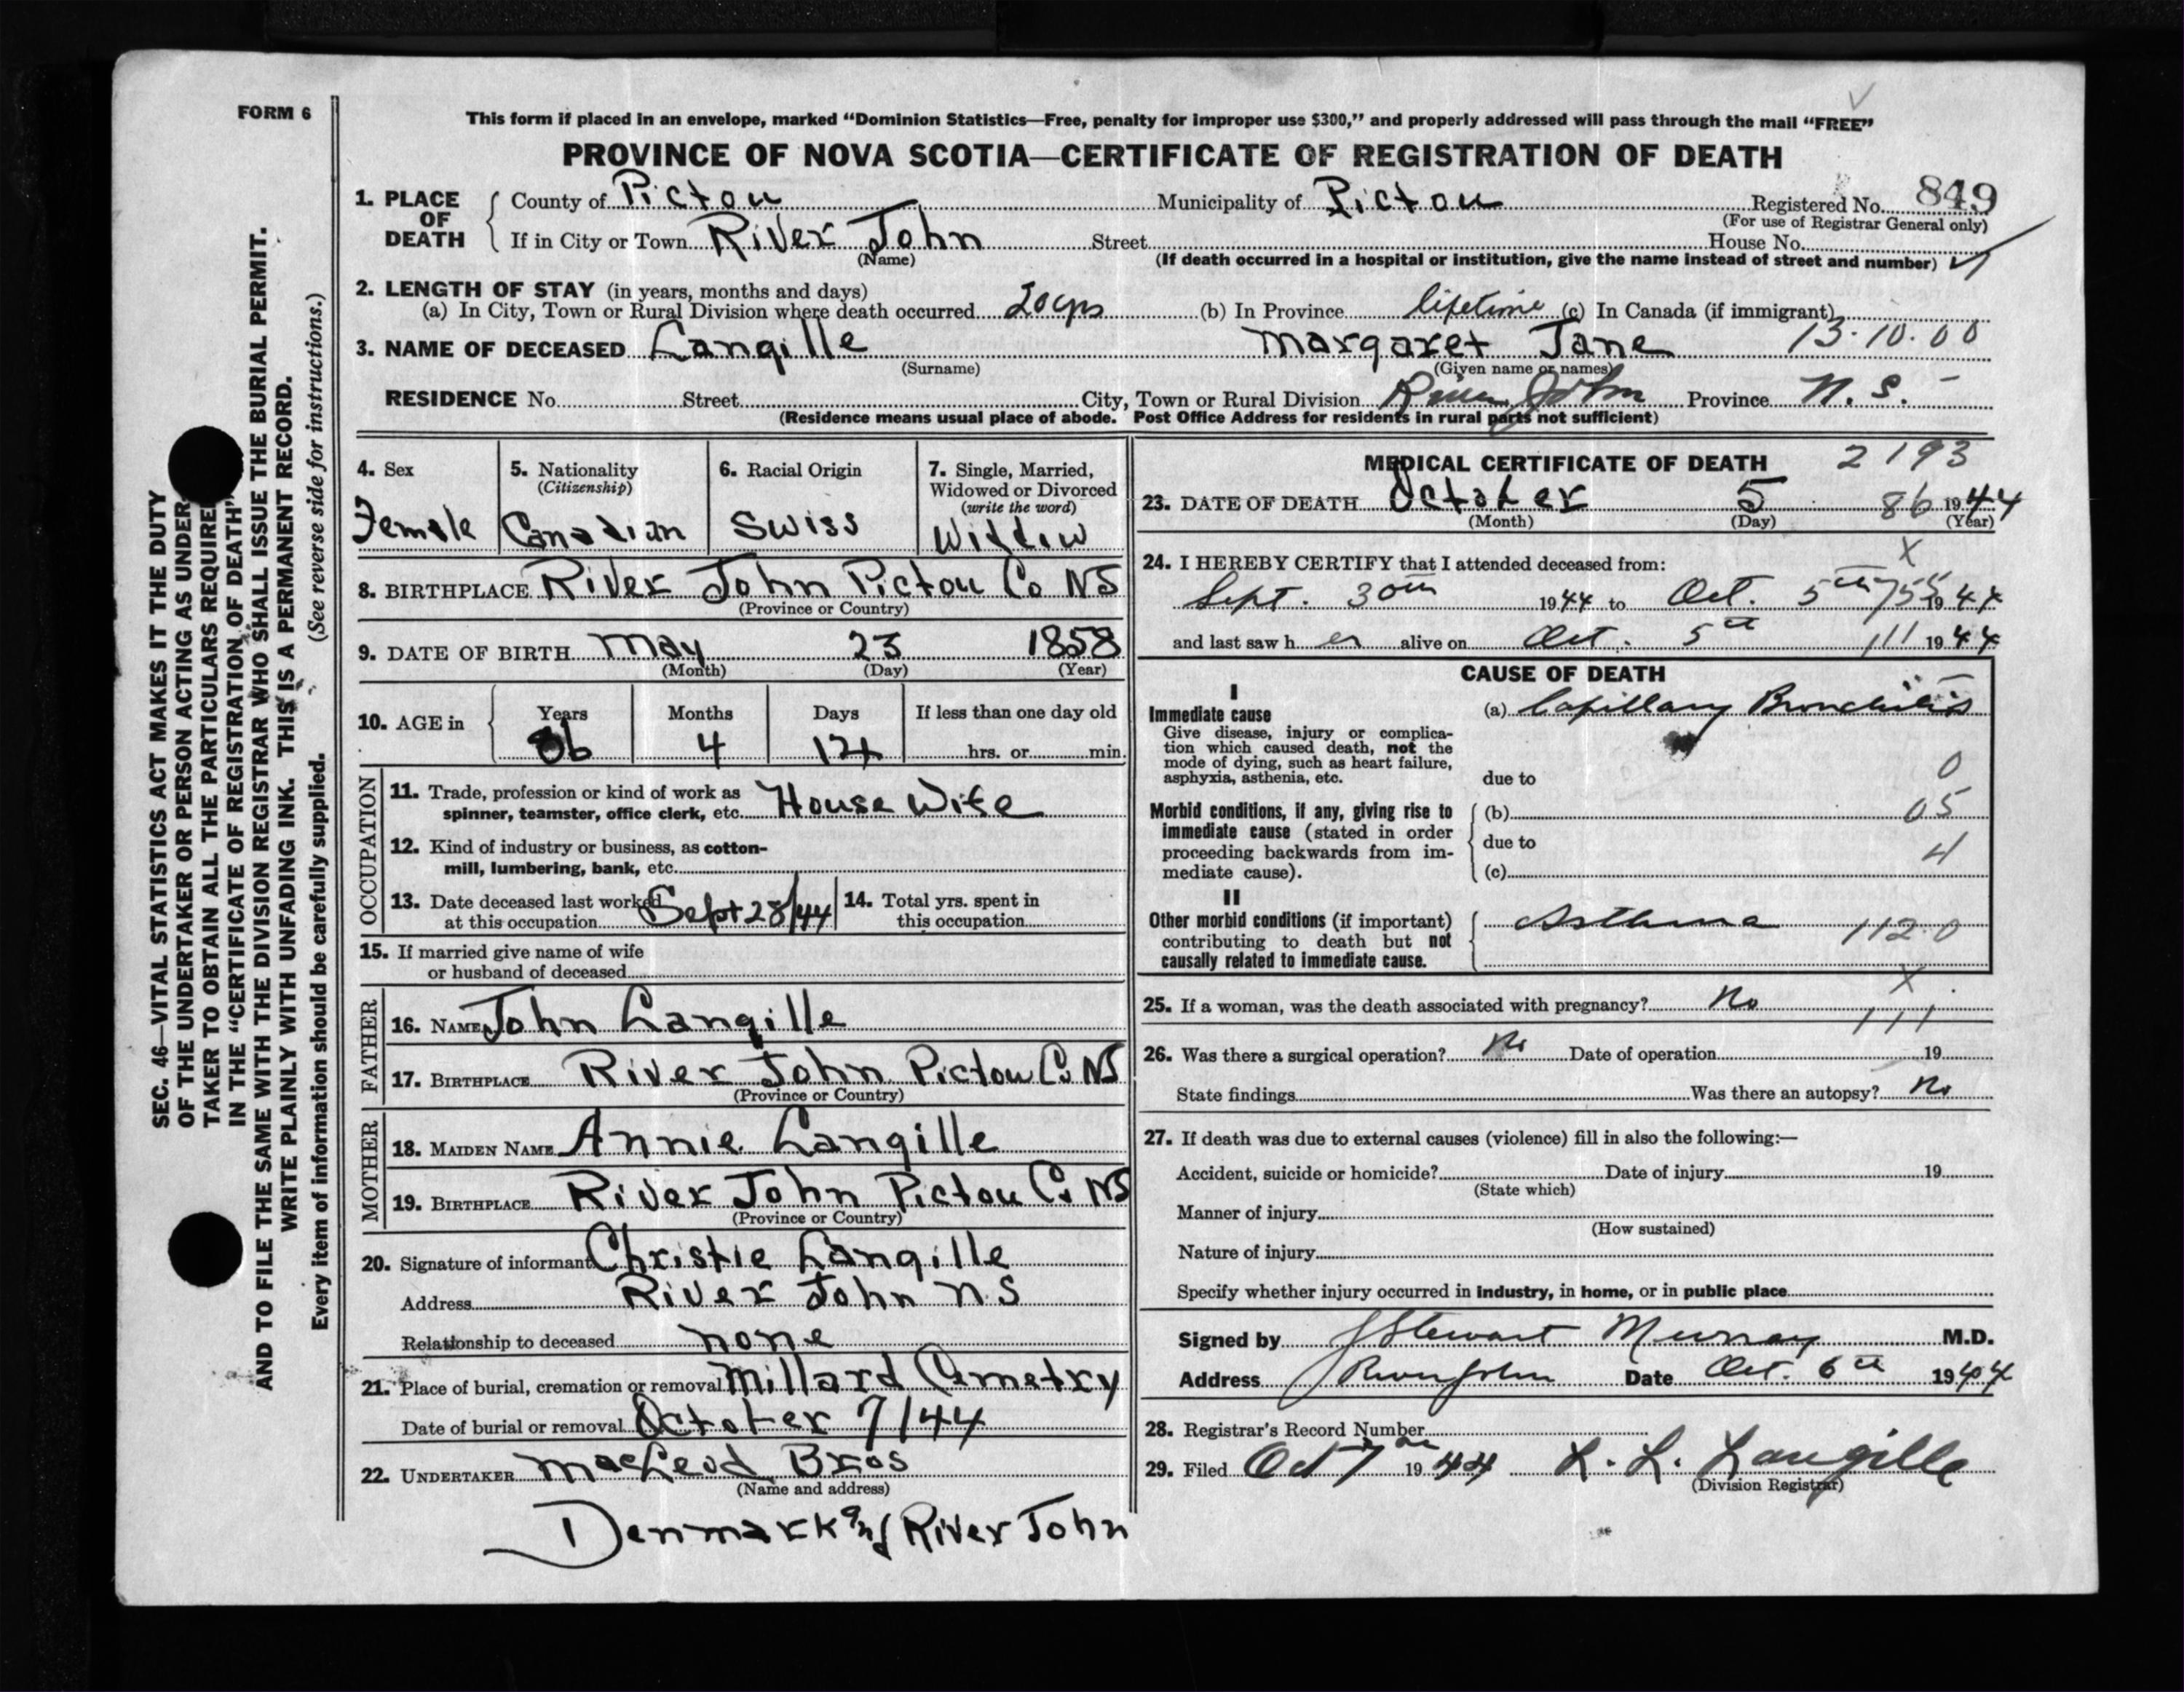 FORM 6
This form if placed in an envelope, marked “Dominion Statistics—Free, penalty for improper use $300,” and properly addressed will pass through the mail “FREE”
PROVINCE OF NOVA SCOTIA—CERTIFICATE OF REGISTRATION OF DEATH
1. PLACE OF DEATH
County of Pictou Municipality of Pictou Registered No. 849
(For use of Registrar General only)
If in City or Town River John Street House No.
(Name) (If death occurred in a hospital or institution, give the name instead of street and number)
2. LENGTH OF STAY (in years, months and days)
(a) In City, Town or Rural Division where death occurred 20 yrs (b) In Province lifetime (c) In Canada (if immigrant)
3. NAME OF DECEASED Langille Margaret Jane 13.10.00
(Surname) (Given name or names)
RESIDENCE No. Street City, Town or Rural Division River John Province N.S.
(Residence means usual place of abode. Post Office Address for residents in rural parts not sufficient)
4. Sex
Female
5. Nationality
(Citizenship)
Canadian
6. Racial Origin
Swiss
7. Single, Married,
Widowed or Divorced
(write the word)
Widdow
8. BIRTHPLACE River John Pictou Co NS
(Province or Country)
9. DATE OF BIRTH May 23 1858
(Month) (Day) (Year)
10. AGE in Years Months Days If less than one day old
86 4 12 hrs. or min.
OCCUPATION
11. Trade, profession or kind of work as
spinner, teamster, office clerk, etc. House Wife
12. Kind of industry or business, as cotton-
mill, lumbering, bank, etc.
13. Date deceased last worked
at this occupation Sept 28/44
14. Total yrs. spent in
this occupation
15. If married give name of wife
or husband of deceased
FATHER
16. NAME John Langille
17. BIRTHPLACE River John Pictou Co NS
(Province or Country)
MOTHER
18. MAIDEN NAME Annie Langille
19. BIRTHPLACE River John Pictou Co NS
(Province or Country)
20. Signature of informant Christie Langille
Address River John NS
Relationship to deceased none
21. Place of burial, cremation or removal Millard Cemetry
Date of burial or removal October 7/44
22. UNDERTAKER MacLeod Bros
(Name and address)
Denmark and River John
MEDICAL CERTIFICATE OF DEATH 2193
23. DATE OF DEATH October 5 86 1944
(Month) (Day) (Year)
X
24. I HEREBY CERTIFY that I attended deceased from:
Sept. 30th 1944 to Oct. 5th 755 1944
and last saw her alive on Oct. 5th 111 1944
CAUSE OF DEATH
I
Immediate cause
Give disease, injury or complica-
tion which caused death, not the
mode of dying, such as heart failure,
asphyxia, asthenia, etc.
(a) Capillary Bronchitis
due to 0
Morbid conditions, if any, giving rise to
immediate cause (stated in order
proceeding backwards from im-
mediate cause).
(b) 05
due to 4
(c)
II
Other morbid conditions (if important)
contributing to death but not
causally related to immediate cause.
Asthma 112.0
X
25. If a woman, was the death associated with pregnancy? No
111
26. Was there a surgical operation? No Date of operation 19
State findings Was there an autopsy? No
27. If death was due to external causes (violence) fill in also the following:—
Accident, suicide or homicide? Date of injury 19
(State which)
Manner of injury
(How sustained)
Nature of injury
Specify whether injury occurred in industry, in home, or in public place
Signed by J Stewart Murray M.D.
Address River John Date Oct. 6th 1944
28. Registrar's Record Number
29. Filed Oct 7th 1944 L. L. Langille
(Division Registrar)
SEC. 46—VITAL STATISTICS ACT MAKES IT THE DUTY
OF THE UNDERTAKER OR PERSON ACTING AS UNDER-
TAKER TO OBTAIN ALL THE PARTICULARS REQUIRED
IN THE “CERTIFICATE OF REGISTRATION OF DEATH”
AND TO FILE THE SAME WITH THE DIVISION REGISTRAR WHO SHALL ISSUE THE BURIAL PERMIT.
WRITE PLAINLY WITH UNFADING INK. THIS IS A PERMANENT RECORD.
Every item of information should be carefully supplied. (See reverse side for instructions.)